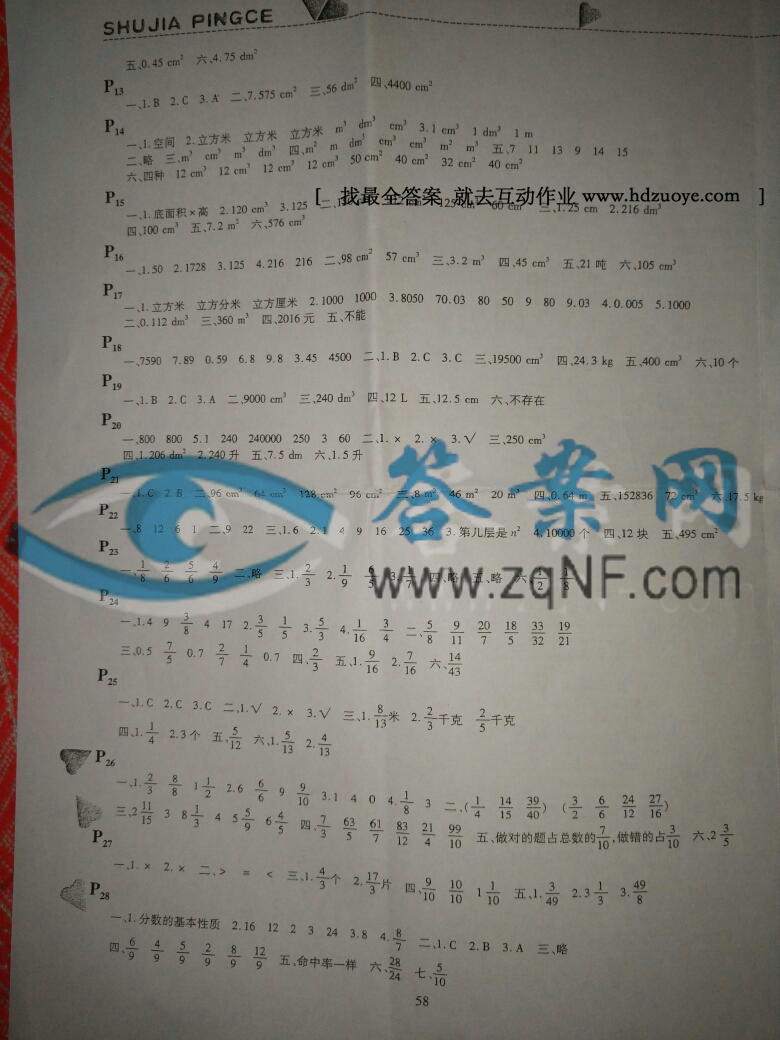 SHUJIA PINGCE
五、0.45 cm² 六、4.75 dm²
P₁₃
一、1. B 2. C 3. A 二、7.575 cm² 三、56 dm² 四、4400 cm²
P₁₄
一、1. 空间 2. 立方米 立方米 立方米 m³ dm³ cm³ 3. 1 cm³ 1 dm³ 1 m
二、略 三、m³ cm³ m³ dm³ 四、m² m dm³ cm³ cm³ m² m³ 五、7 11 13 9 14 15
六、四种 12 cm³ 12 cm³ 12 cm³ 12 cm³ 50 cm² 40 cm² 32 cm² 40 cm²
P₁₅
[ 找最全答案 就去互动作业 www.hdzuoye.com ]
一、1. 底面积×高 2. 120 cm³ 3. 125 二、 125 cm³ 60 cm³ 三、1. 25 cm 2. 216 dm³
四、100 cm³ 五、7.2 m² 六、576 cm³
P₁₆
一、1. 50 2. 1728 3. 125 4. 216 216 二、98 cm² 57 cm³ 三、3.2 m³ 四、45 cm³ 五、21 吨 六、105 cm³
P₁₇
一、1. 立方米 立方分米 立方厘米 2. 1000 1000 3. 8050 70.03 80 50 9 80 9.03 4. 0.005 5. 1000
二、0.112 dm³ 三、360 m³ 四、2016 元 五、不能
P₁₈
一、7590 7.89 0.59 6.8 9.8 3.45 4500 二、1. B 2. C 3. C 三、19500 cm³ 四、24.3 kg 五、400 cm³ 六、10 个
P₁₉
一、1. B 2. C 3. A 二、9000 cm³ 三、240 dm³ 四、12 L 五、12.5 cm 六、不存在
P₂₀
一、800 800 5.1 240 240000 250 3 60 二、1. × 2. × 3. √ 三、250 cm³
四、1. 206 dm² 2. 240 升 五、7.5 dm 六、1.5 升
P₂₁
一、1. C 2. B 二、96 cm² 64 cm³ 128 cm² 96 cm² 三、8 m² 46 m² 20 m³ 四、0.64 m 五、152836 72 cm³ 六、17.5 kg
P₂₂
一、8 12 6 1 二、9 22 三、1. 6 2. 1 4 9 16 25 36 3. 第几层是 n² 4. 10000 个 四、12 块 五、495 cm²
P₂₃
一、1/8 2/6 5/6 4/9 二、略 三、1. 2/3 2. 1/9 四、略 五、略 六、
答案网
www.zqNF.com
P₂₄
一、1. 4 9 3/8 4 17 2. 3/5 1/5 3. 5/3 4. 1/16 3/4 二、5/8 9/11 20/7 18/5 33/32 19/21
三、0.5 7/5 0.7 2/7 1/4 0.7 四、2/3 五、1. 9/16 2. 7/16 六、14/43
P₂₅
一、1. C 2. C 3. C 二、1. √ 2. × 3. √ 三、1. 8/13米 2. 2/3千克 2/5千克
四、1. 1/4 2. 3 个 五、5/12 六、1. 5/13 2. 4/13
P₂₆
一、1. 2/3 8/8 1 1/2 2. 6 6/6 9 9/10 3. 1 4 0 4. 1/8 3 二、(1/4 14/15 39/40) (3/2 6/6 24/12 27/16)
三、2 11/15 3 8 1/3 4 5 5/9 6 4/5 四、7/3 63/5 61/7 83/12 21/4 99/10 五、做对的题占总数的7/10,做错的占3/10 六、2 3/5
P₂₇
一、1. × 2. × 二、> = < 三、1. 4/3个 2. 17/3片 四、9/10 10/10 1 1/10 五、1. 3/49 2. 3 1/3 3. 49/8
P₂₈
一、1. 分数的基本性质 2. 16 12 2 3 24 3. 8 4. 8/7 二、1. C 2. B 3. A 三、略
四、6/9 4/9 5/9 2/9 8/9 12/9 五、命中率一样 六、28/24 七、5/10
58